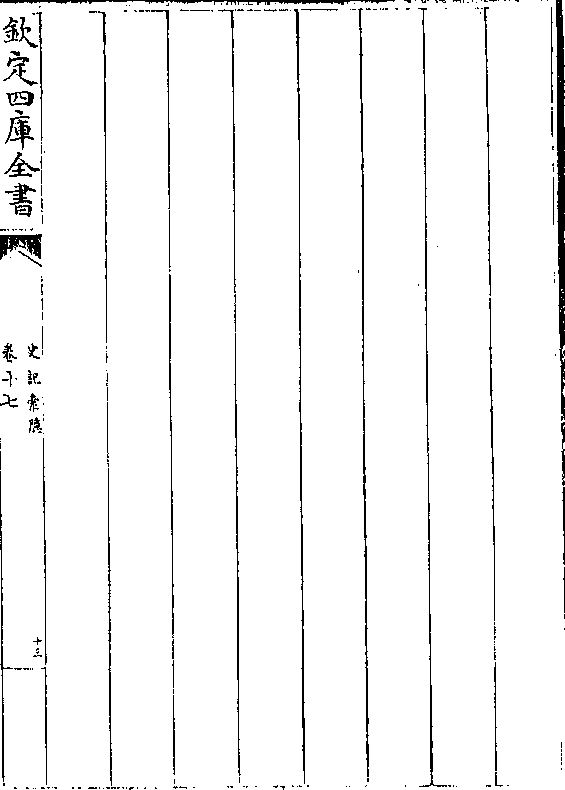 欽定四庫全書
史記索隱
卷十七
十三